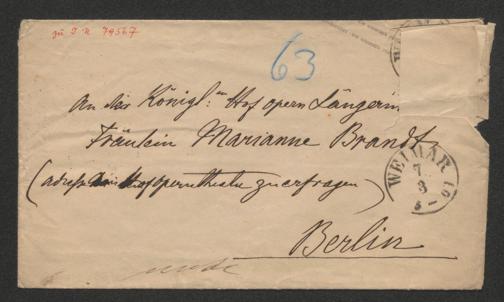 zu I N 79567
63
An die Königl: Hof opern Sängerin
Fräulein Marianne Brandt
(adresse im Hofoperntheater zu erfragen)
WEIMAR
7
3
5-6
Berlin